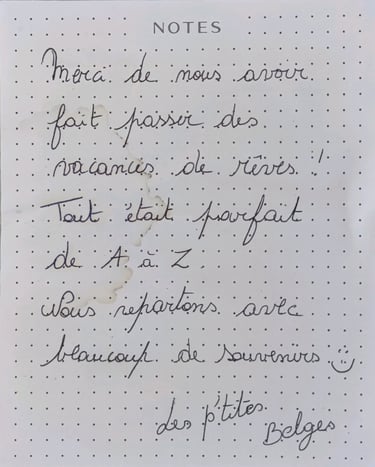 NOTES
Merci de nous avoir
fait passer des
vacances de rêves !
Tout était parfait
de A à Z
Nous repartons avec
beaucoup de souvenirs :)
Les p'tites
Belges